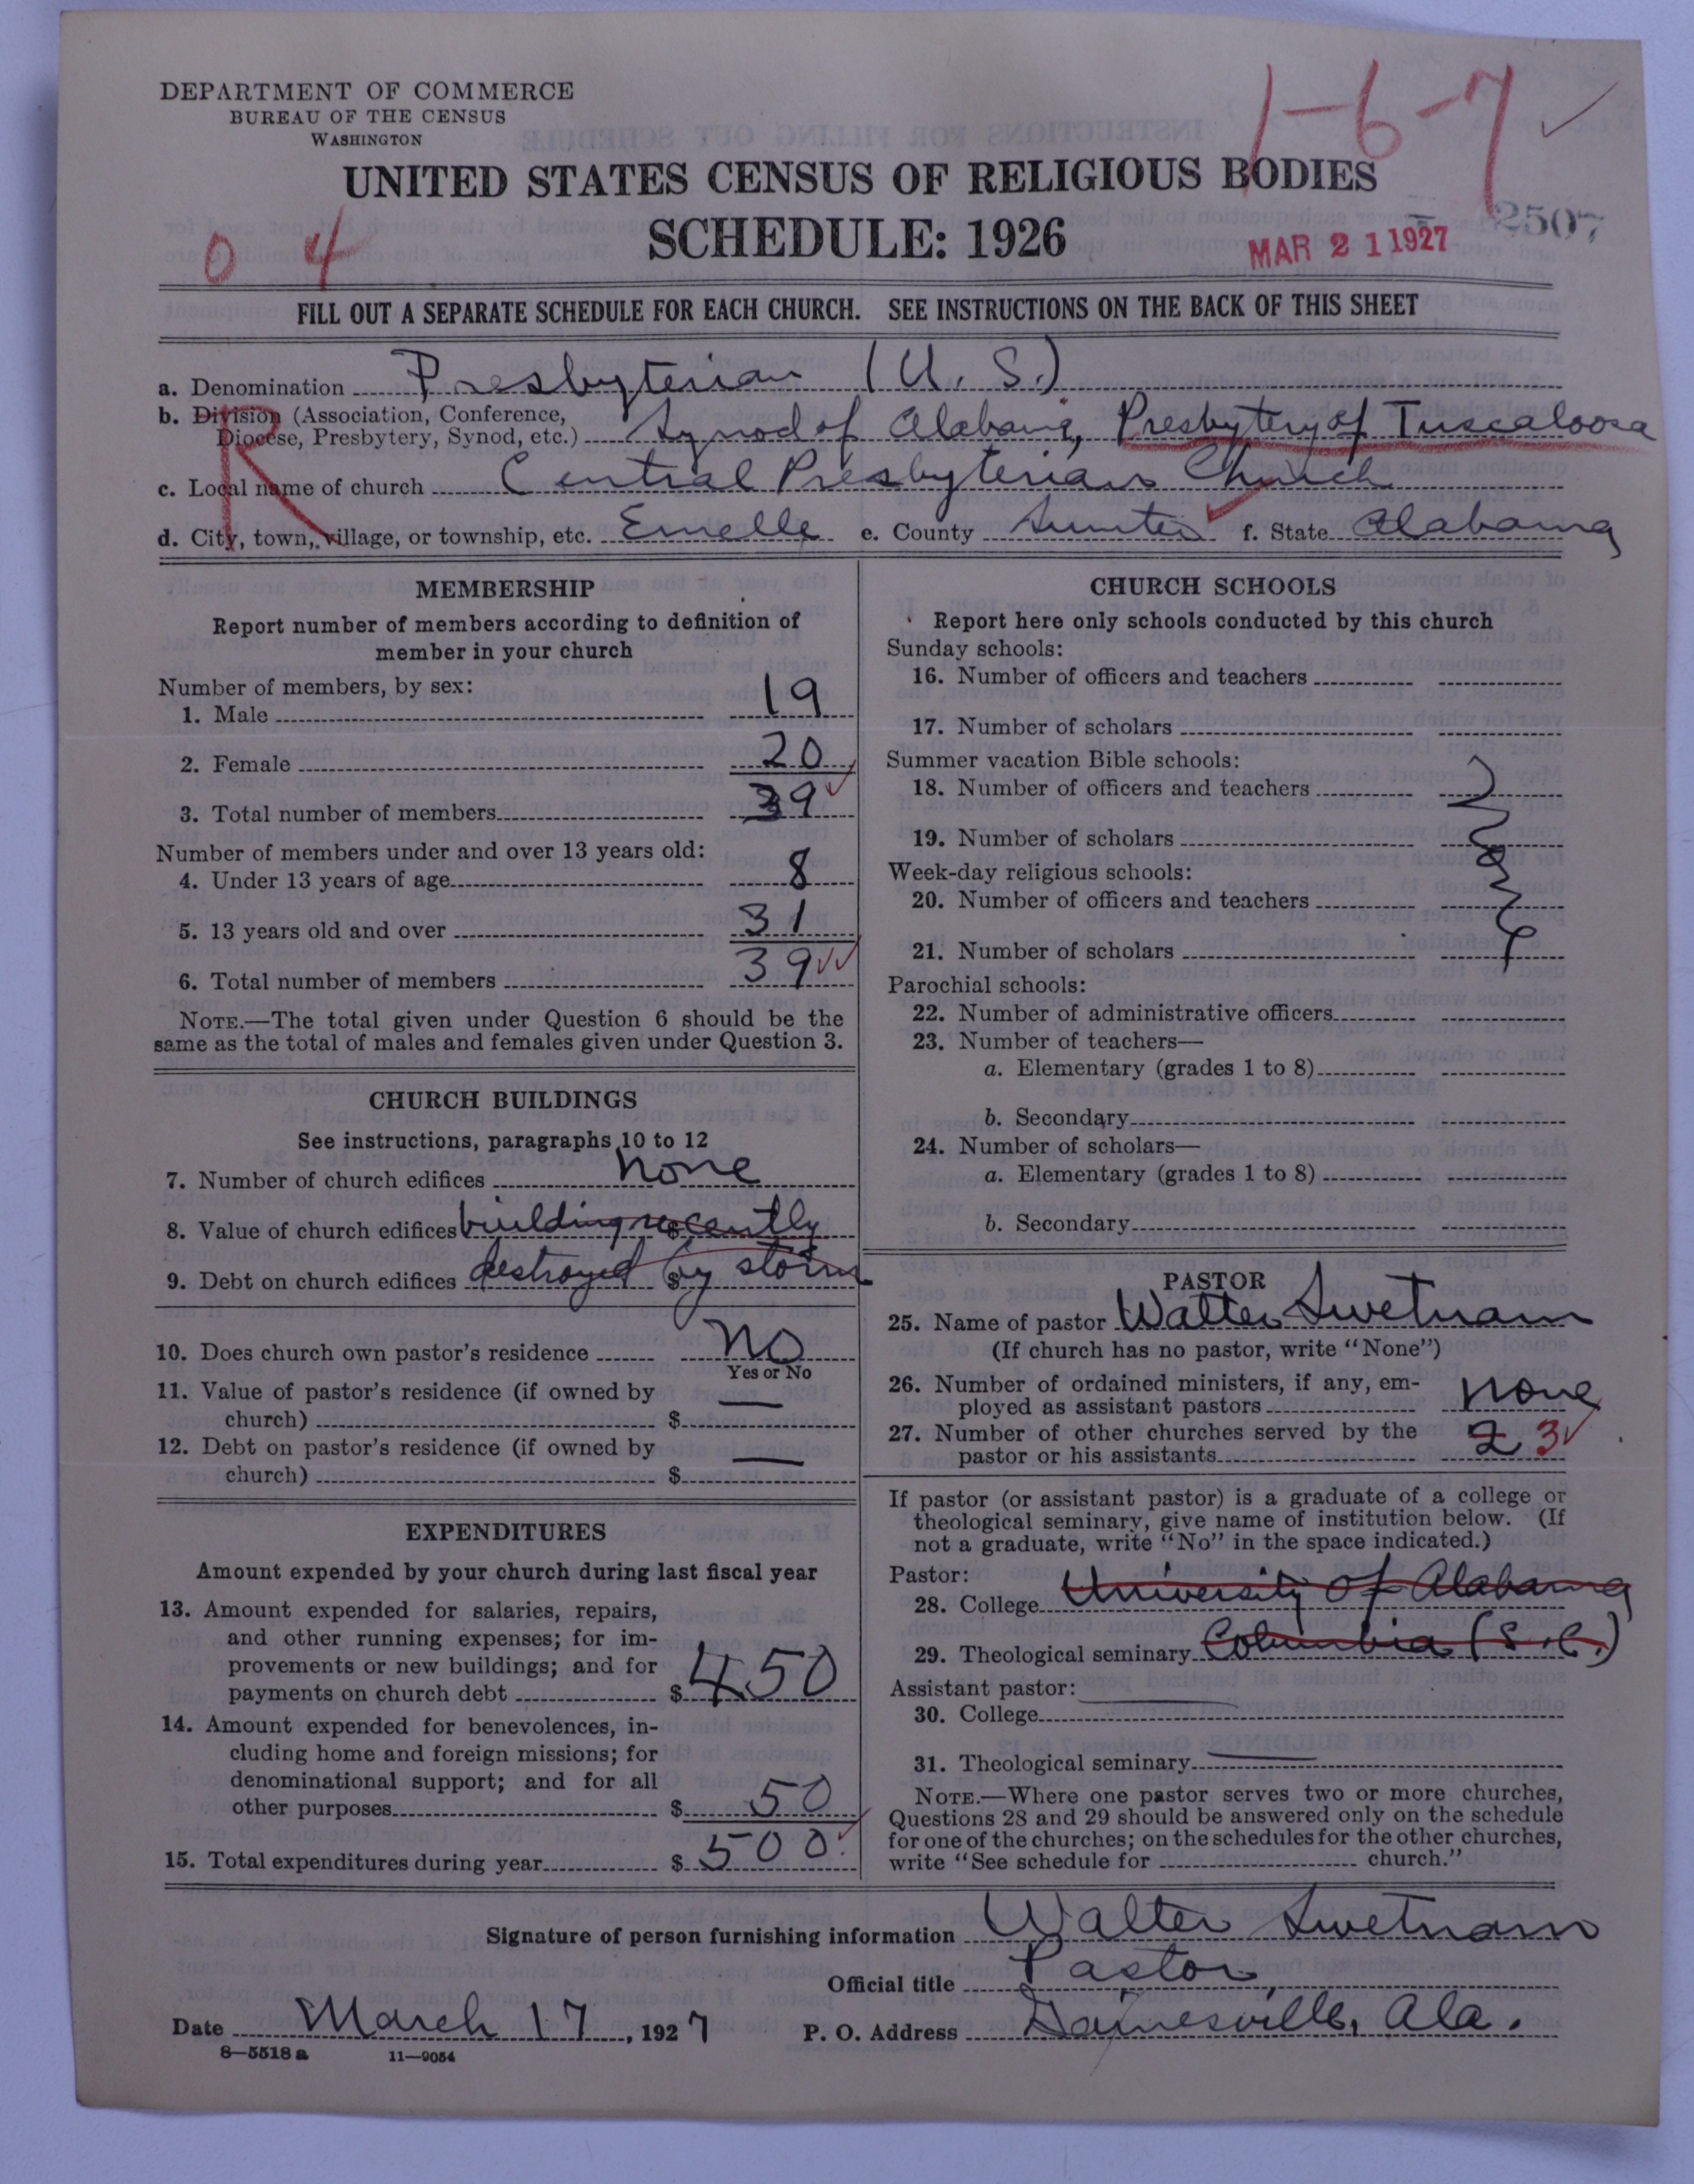 DEPARTMENT OF COMMERCE
BUREAU OF THE CENSUS
WASHINGTON
1-6-7
UNITED STATES CENSUS OF RELIGIOUS BODIES
SCHEDULE: 1926
0 4
2507
MAR 21 1927
FILL OUT A SEPARATE SCHEDULE FOR EACH CHURCH. SEE INSTRUCTIONS ON THE BACK OF THIS SHEET
a. Denomination Presbyterian (U. S.)
b. Division (Association, Conference,
Diocese, Presbytery, Synod, etc.) Synod of Alabama, Presbytery of Tuscaloosa
R
c. Local name of church Central Presbyterian Church
d. City, town, village, or township, etc. Emelle e. County Sumter f. State Alabama
MEMBERSHIP
Report number of members according to definition of
member in your church
Number of members, by sex:
1. Male 19
2. Female 20
3. Total number of members 39
Number of members under and over 13 years old:
4. Under 13 years of age 8
5. 13 years old and over 31
6. Total number of members 39
NOTE.—The total given under Question 6 should be the
same as the total of males and females given under Question 3.
CHURCH BUILDINGS
See instructions, paragraphs 10 to 12
7. Number of church edifices none
8. Value of church edifices $ building recently
9. Debt on church edifices $ destroyed by storm
10. Does church own pastor's residence no
Yes or No
11. Value of pastor's residence (if owned by
church) $ —
12. Debt on pastor's residence (if owned by
church) $ —
EXPENDITURES
Amount expended by your church during last fiscal year
13. Amount expended for salaries, repairs,
and other running expenses; for im-
provements or new buildings; and for
payments on church debt $ 450
14. Amount expended for benevolences, in-
cluding home and foreign missions; for
denominational support; and for all
other purposes $ 50
15. Total expenditures during year $ 500
CHURCH SCHOOLS
Report here only schools conducted by this church
Sunday schools:
16. Number of officers and teachers
17. Number of scholars
Summer vacation Bible schools:
18. Number of officers and teachers
19. Number of scholars
Week-day religious schools:
20. Number of officers and teachers
21. Number of scholars
Parochial schools:
22. Number of administrative officers
23. Number of teachers—
a. Elementary (grades 1 to 8)
b. Secondary
24. Number of scholars—
a. Elementary (grades 1 to 8)
b. Secondary
PASTOR
25. Name of pastor Walter Swetnam
(If church has no pastor, write "None")
26. Number of ordained ministers, if any, em-
ployed as assistant pastors none
27. Number of other churches served by the
pastor or his assistants 2 3
If pastor (or assistant pastor) is a graduate of a college or
theological seminary, give name of institution below. (If
not a graduate, write "No" in the space indicated.)
Pastor:
28. College University of Alabama
29. Theological seminary Columbia (S.C.)
Assistant pastor:
30. College
31. Theological seminary
NOTE.—Where one pastor serves two or more churches,
Questions 28 and 29 should be answered only on the schedule
for one of the churches; on the schedules for the other churches,
write "See schedule for church."
Signature of person furnishing information Walter Swetnam
Official title Pastor
Date March 17, 1927 P. O. Address Gainesville, Ala.
8—5518 a 11—9054